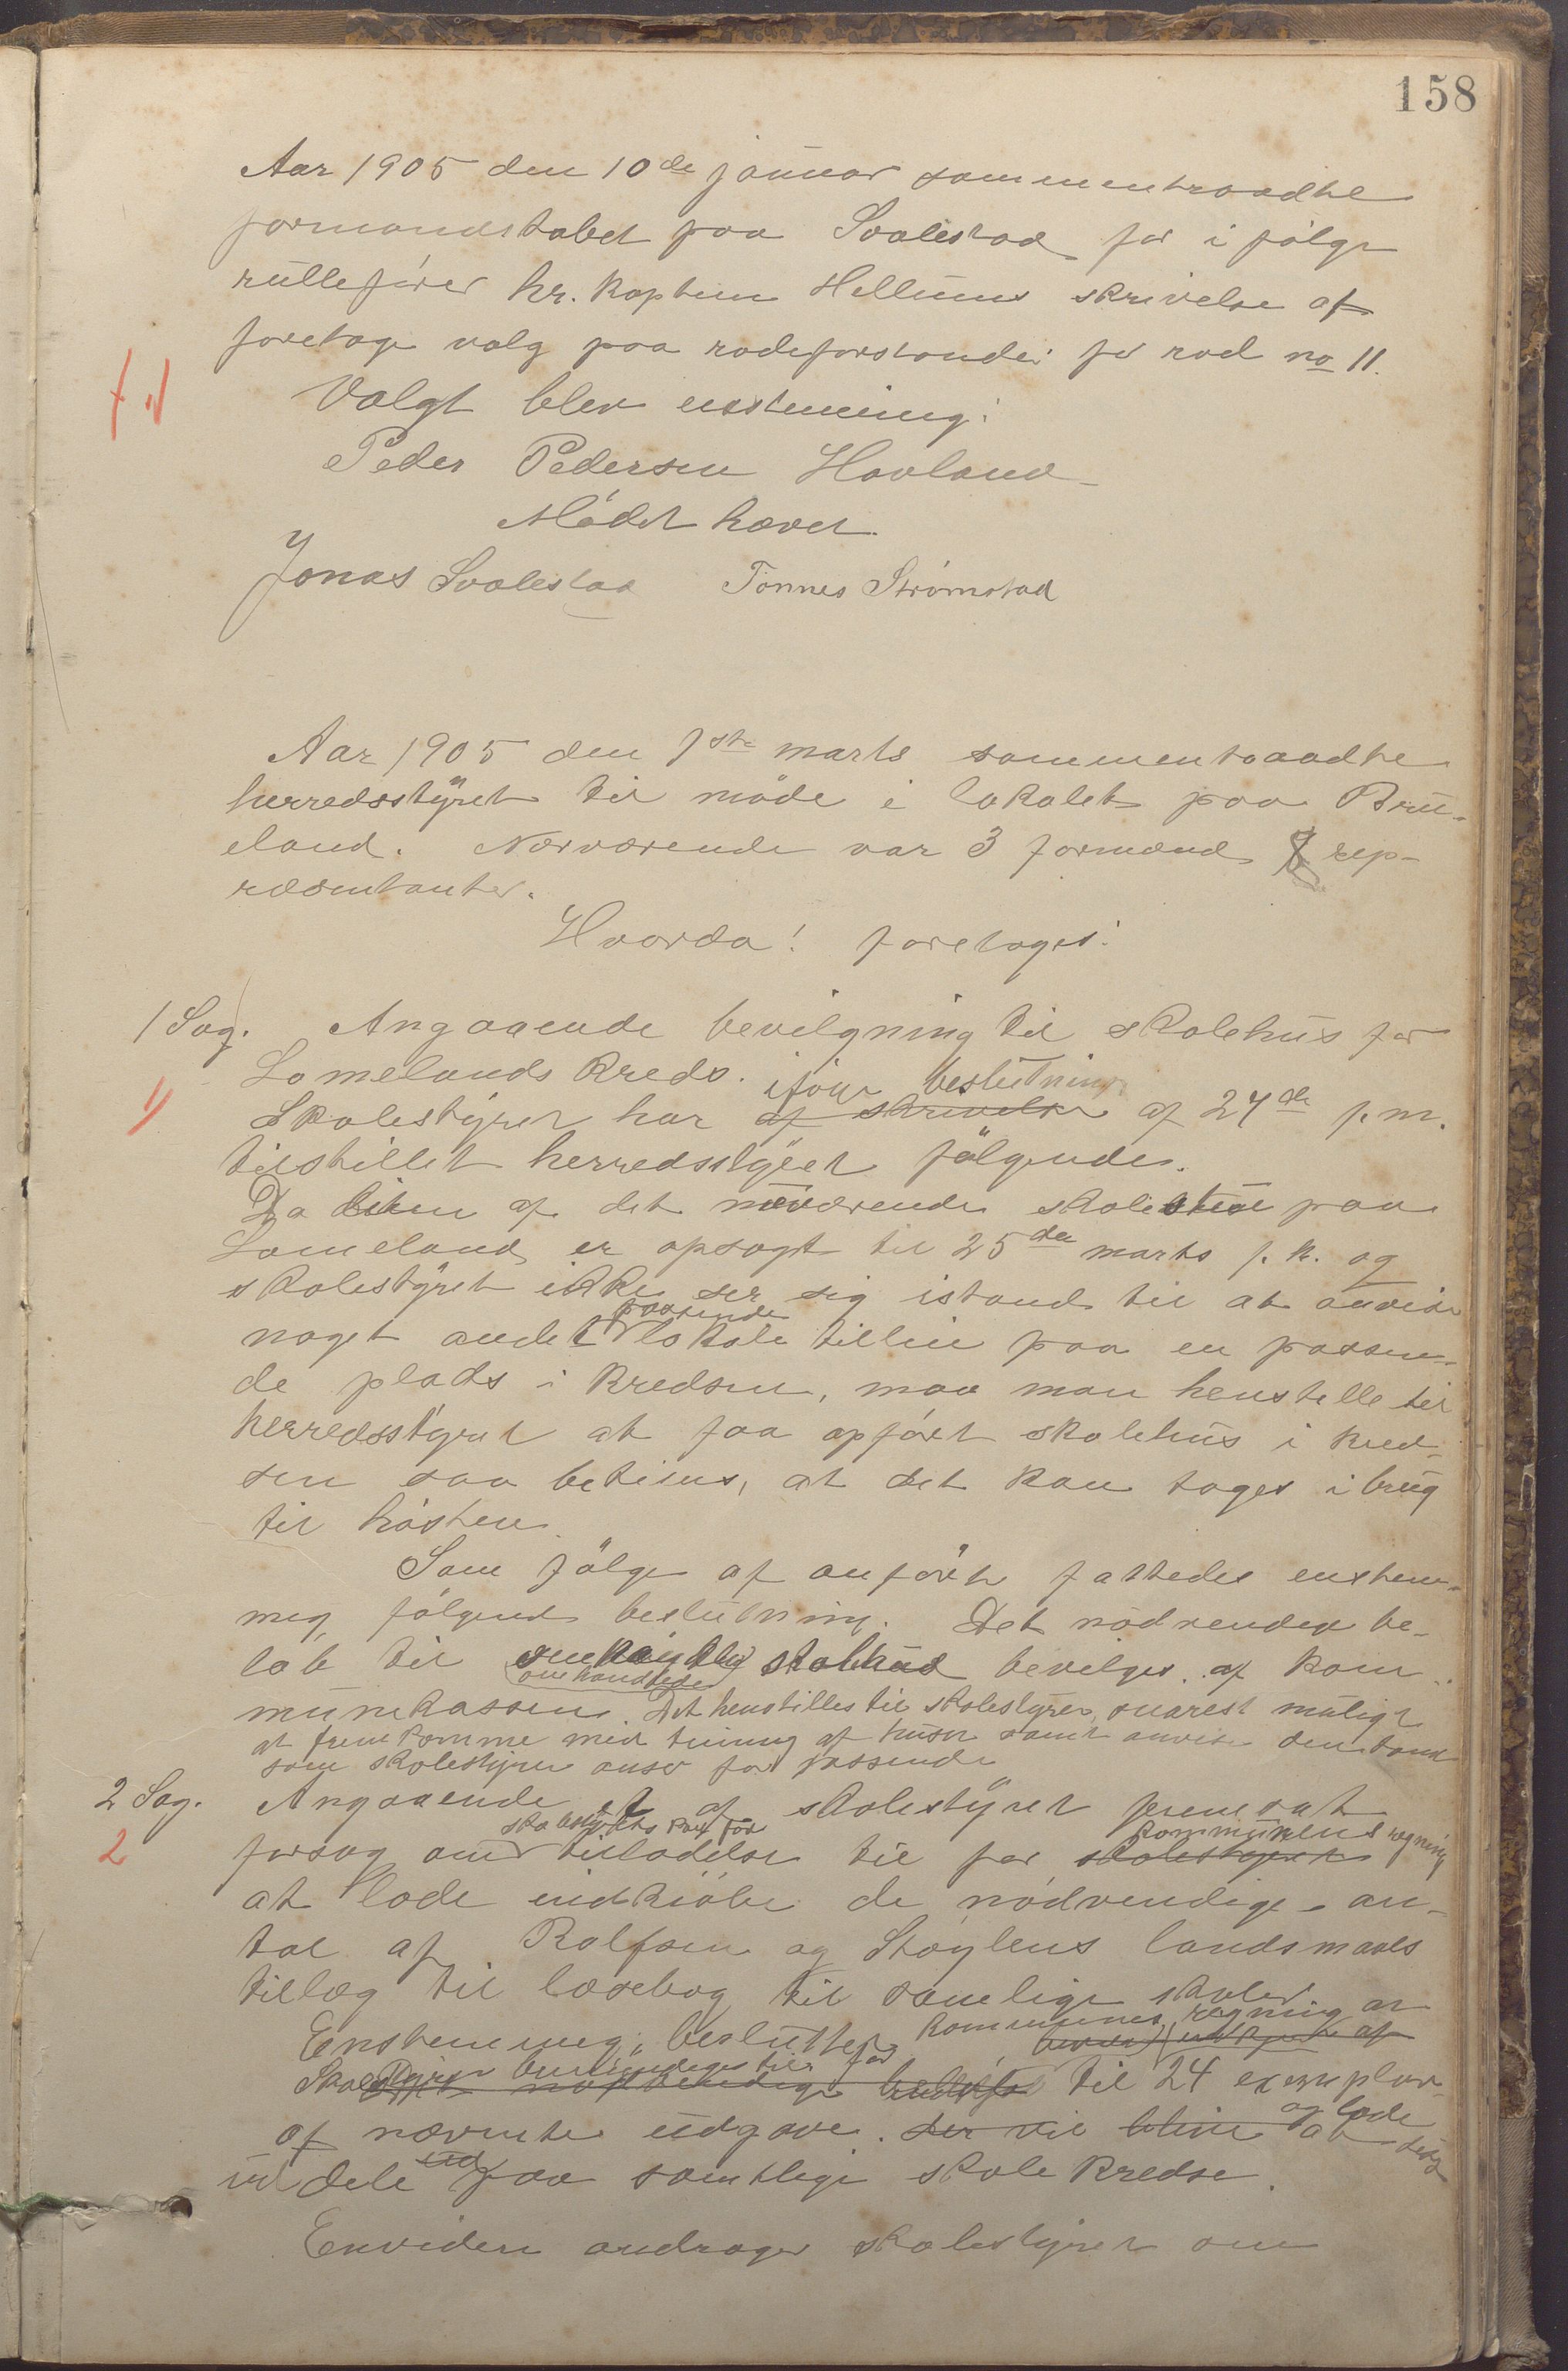 158
Aar 1905 den 10de januar sammentraadte
formandskabet paa Svalestad for i følge
rullefører hr. kaptein Hellums skrivelse at
foretage valg paa rodeforstander for rod no 11.
Valgt blev enstemmig:
Peder Pedersen Hovland
Mødet hævet
Jonas Svalestad Tønnes Strømstad
Aar 1905 den 1ste marts sammentraadte
herredsstyret til møde i lokalet paa Bru-
eland. Nærværende var 3 formænd 8 rep-
ræsentanter.
Hvorda! foretages:
1 Sag. Angaaende bevilgning til skolehus for
Lomelands kreds.
ifølge beslutning
1) Skolestyret har af skrivelse af 27de f.m.
tilstillet herredsstyret følgende.
Da leien af det nuværende skolestue paa
Lomeland er opsagt til 25de marts f.k. og
skolestyret ikke ser sig istand til at anvise
passende
noget andet lokale tilleie paa en passen-
de plads i kredsen, maa man henstille til
herredsstyret at faa opført skolehus i kred-
sen saa betiens, at det kan tages i brug
til høsten.
Som følge af anførte fattedes enstem-
mig følgende beslutning. Det nødvendige be-
løb til skolehus bevilges af kom-
omhandlede
munekassen. Det henstilles til skolestyret snarest muligt
at fremkomme med tegning af huset samt anvise den tomt
som skolestyret anser for passende
2 Sag. Angaaende et af skolestyret fremsat
skolestyrets for kommunens regning
2 forsag om tilladelse til for skolestyret
at lade indkiøbe de nødvendige an-
tal af Rolfsen og Støylens landsmaals
tillæg til læsebog til samtlige skoler
Enstemmig besluttes kommunens regning at
Skolestyret bemyndiges til for
til 24 exemplar
og lade
af nævnte udgave. der vil blive at
ud dele paa samtlige skole kredse.
Envidere andrager skolestyret om